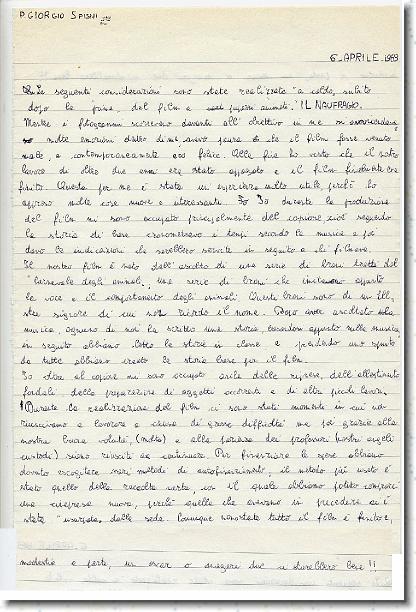 P. GIORGIO SPISNI
6 APRILE 1989
Le seguenti considerazioni sono state realizzate "a caldo, subito
dopo la fine, del film a pupazzi animati. "IL NAUFRAGIO.
Mentre i fotogrammi scorrevano davanti all'obiettivo in me
molte emozioni dentro di me, avevo paura che il film fosse venuto
male, e contemporaneamente ero felice. Alla fine ho visto che il nostro
lavoro di oltre due anni era stato appagato e il film finalmente era
finito. Questa per me è stata un'esperienza molto utile, perchè ho
appreso molte cose nuove e interessanti. Io durante la produzione
del film mi sono occupato principalmente del copione, cioè seguendo
la storia di base cronometravo i tempi secondo la musica e poi
davo le indicazioni che sarebbero servite in seguito a chi filmava.
Il nostro film è nato dall'ascolto di una serie di brani tratti dal
"carnevale degli animali, una serie di brani che appunto
la voce e il comportamento degli animali. Questi brani sono di un illu_
stre signore di cui non ricordo il nome. Dopo aver ascoltato la
musica, ognuno di noi ha scritto una storia basandosi appunto sulla musica,
in seguito abbiamo letto le storie in classe e prendendo uno spunto
da tutte abbiamo creato la storia base per il film.
Io oltre al copione mi sono occupato anche delle riprese, dell'allestimento
fondali, della preparazione di oggetti occorrenti e di altri piccoli lavori.
Durante la realizzazione del film ci sono stati momenti in cui non
riuscivamo a lavorare a causa di grosse difficoltà ma poi grazie alla
nostra buona volontà, (molta) e alla pazienza dei professori (nostri angeli
custodi) siamo riusciti a continuare. Per finanziare le spese abbiamo
dovuto escogitare vari metodi di autofinanziamento, il metodo più usato è
stato quello della raccolta carta, con il quale abbiamo potuto comprarci
una cinepresa nuova, perchè quella che avevamo in precedenza ci è
stata "usurpata, dalla sede. Comunque nonostante tutto il film è finito e,
modestia a parte, un oscar o magari due ci starebbero bene!!